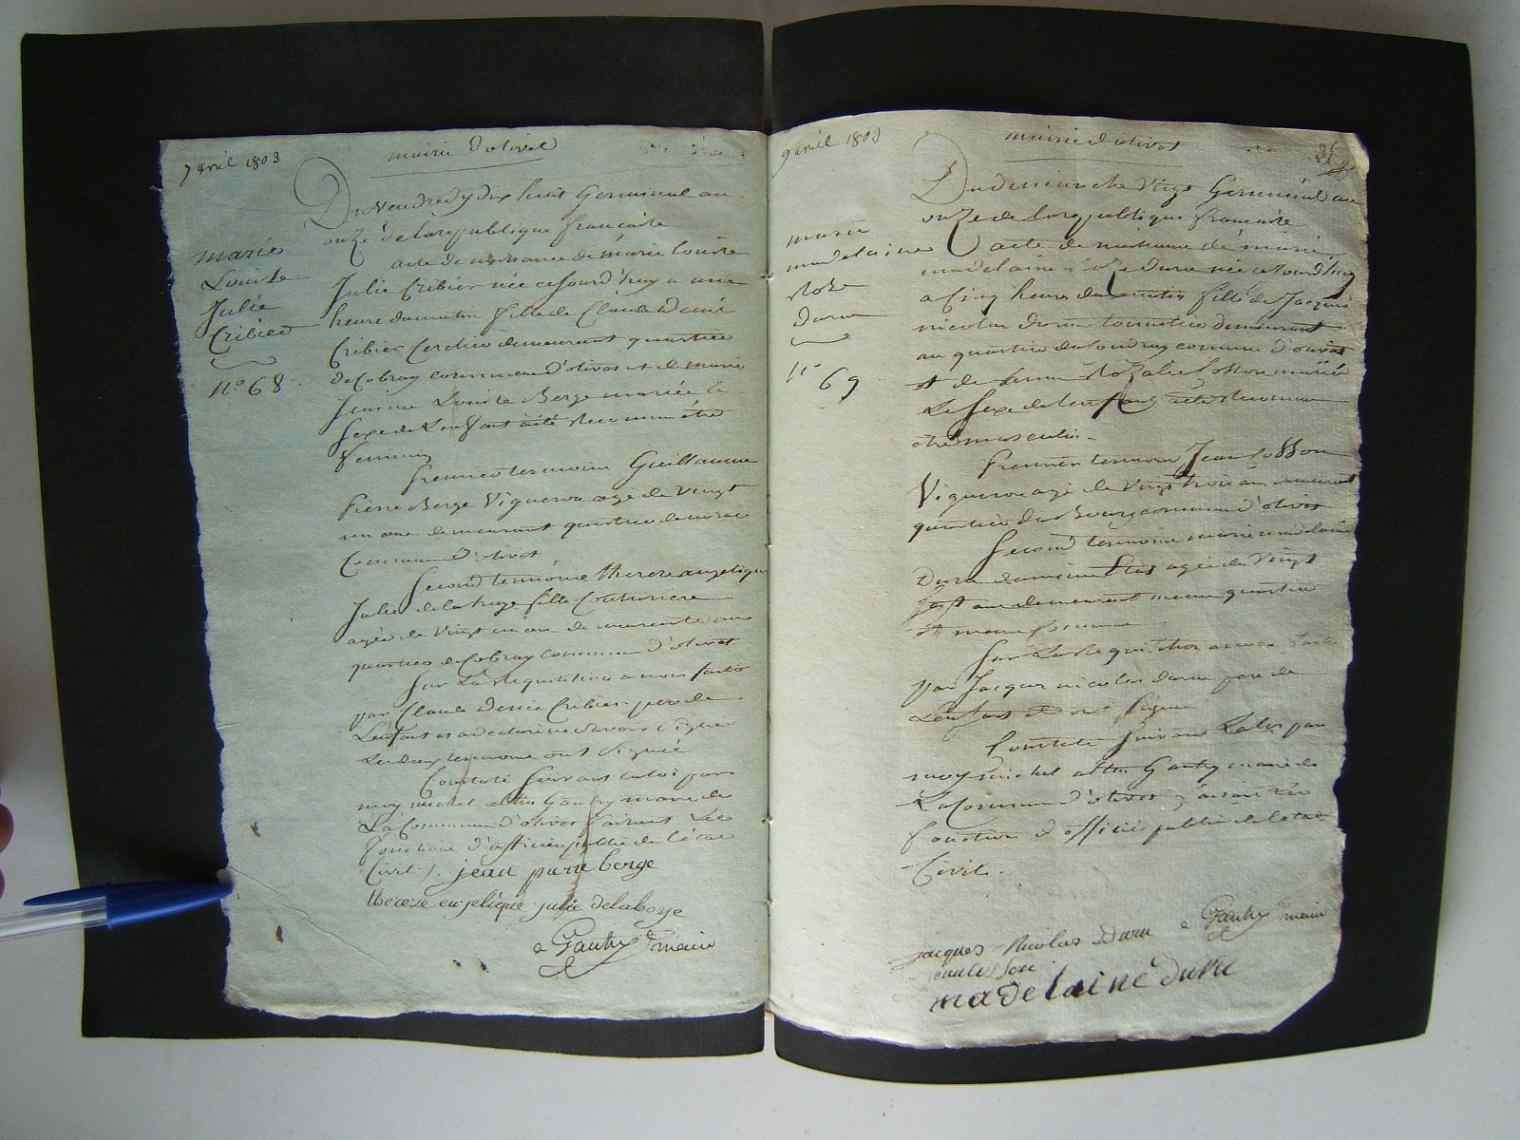 7 avril 1803
mairie d'olivet
Du vendredy dix huit Germinal an
onze de la republique francaise
acte de naissance de marie louise
Julie Cribier née ce jourd'huy a une
heure du matin fille de Claude denié
Cribier demeurant quartier
de Cobray commune d'olivet et de marie
Louise Berge mariée le
sexe de l'enfant a été reconnu être
feminin
premier temoin Guillaume
pierre Berge Vigneron agé de vingt
un ans demeurant quartier de
Commune d'olivet
second temoin therese angelique
Julie de la haye fille Couturiere
agée de vingt un an demeurante au
quartier de Cobray commune d'olivet
sur la requisition a nous faitte
par Claude denié Cribier pere de
L'enfant et a declaré ne savoir signer
Les deux temoins ont signée
Constaté suivant la loi par
moy michel Gautry maire de
La Commune d'olivet faisant les
fonctions d'officier public de l'état
Civil /. jean piarre berge
therese enjelique julie delahoye
Gautry maire
marie
Louise
Julie
Cribier
n° 68
9 avril 1803
mairie d'olivet
Du dimanche vingt Germinal an
onze de la republique francaise
acte de naissance de marie
madelaine Roze Daru née ce jourd'huy
a Cinq heures du matin fille de Jacques
nicolas Daru demeurant
au quartier du commune d'olivet
et de Rozalie Losson mariée
Le sexe de l'enfant a été reconnu
être masculin
premier temoin Jean Losson
Vigneron agé de vingt trois ans demeurant
quartier du Bourg commune d'olivet
second temoin marie madelaine
Daru agée de vingt
ans demeurant meme quartier
et meme Commune
sur La Requisition a nous faitte
par Jacques nicolas Daru pere de
L'enfant et a signé
Constaté suivant La loi par
moy michel Gautry maire de
La Commune d'olivet faisant les
fonctions d'officier public de l'état
Civil.
marie
madelaine
Roze
Daru
n° 69
Jacques Nicolas Daru
Gautry maire
madelaine Daru